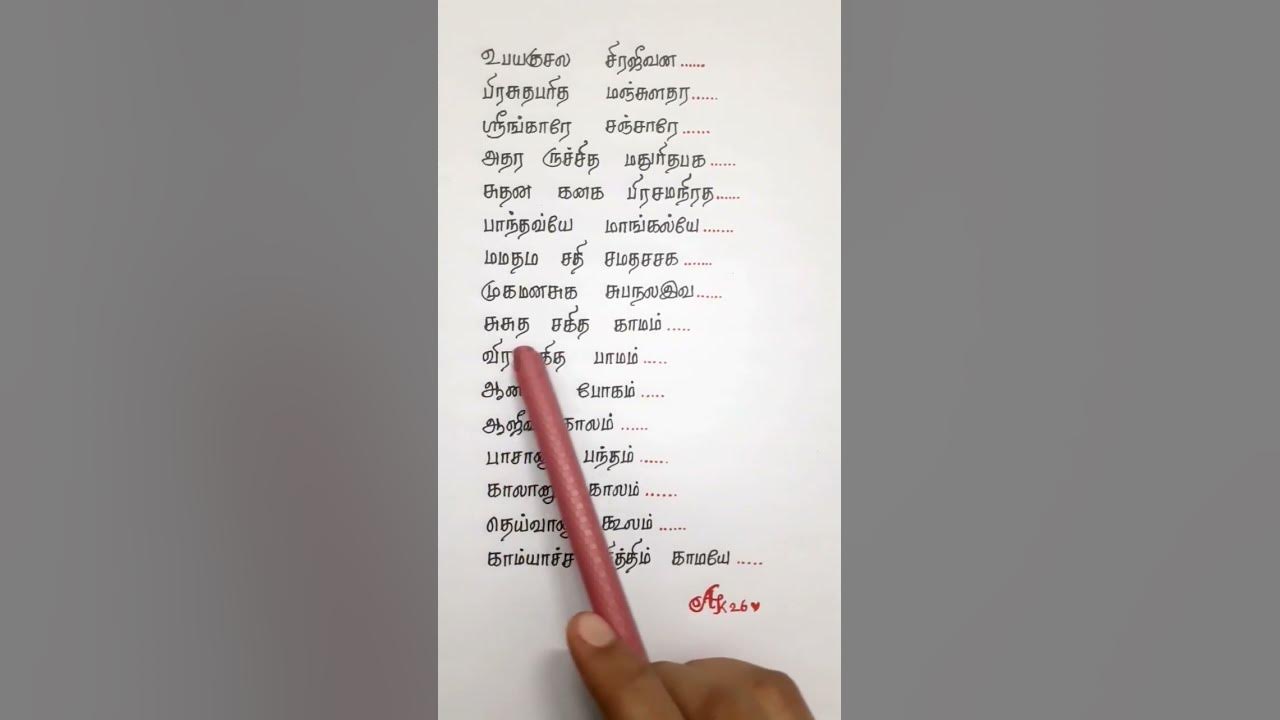 உபயகுசல சிரஜீவன......
பிரசுதபரித மஞ்சுளதர......
ஶ்ரீங்காரே சஞ்சாரே......
அதர ருச்சித மதுரிதபக......
சுதன கனக பிரசமநிரத......
பாந்தவ்யே மாங்கல்யே.......
மமதம சதி சமதசசக.......
முகமனசுக சுபநலஇவ......
சுசுத சகித காமம்.....
பாமம்.....
போகம்.....
காலம்......
பந்தம்......
காலம்......
கூலம்......
காமயே.....
AK26♥